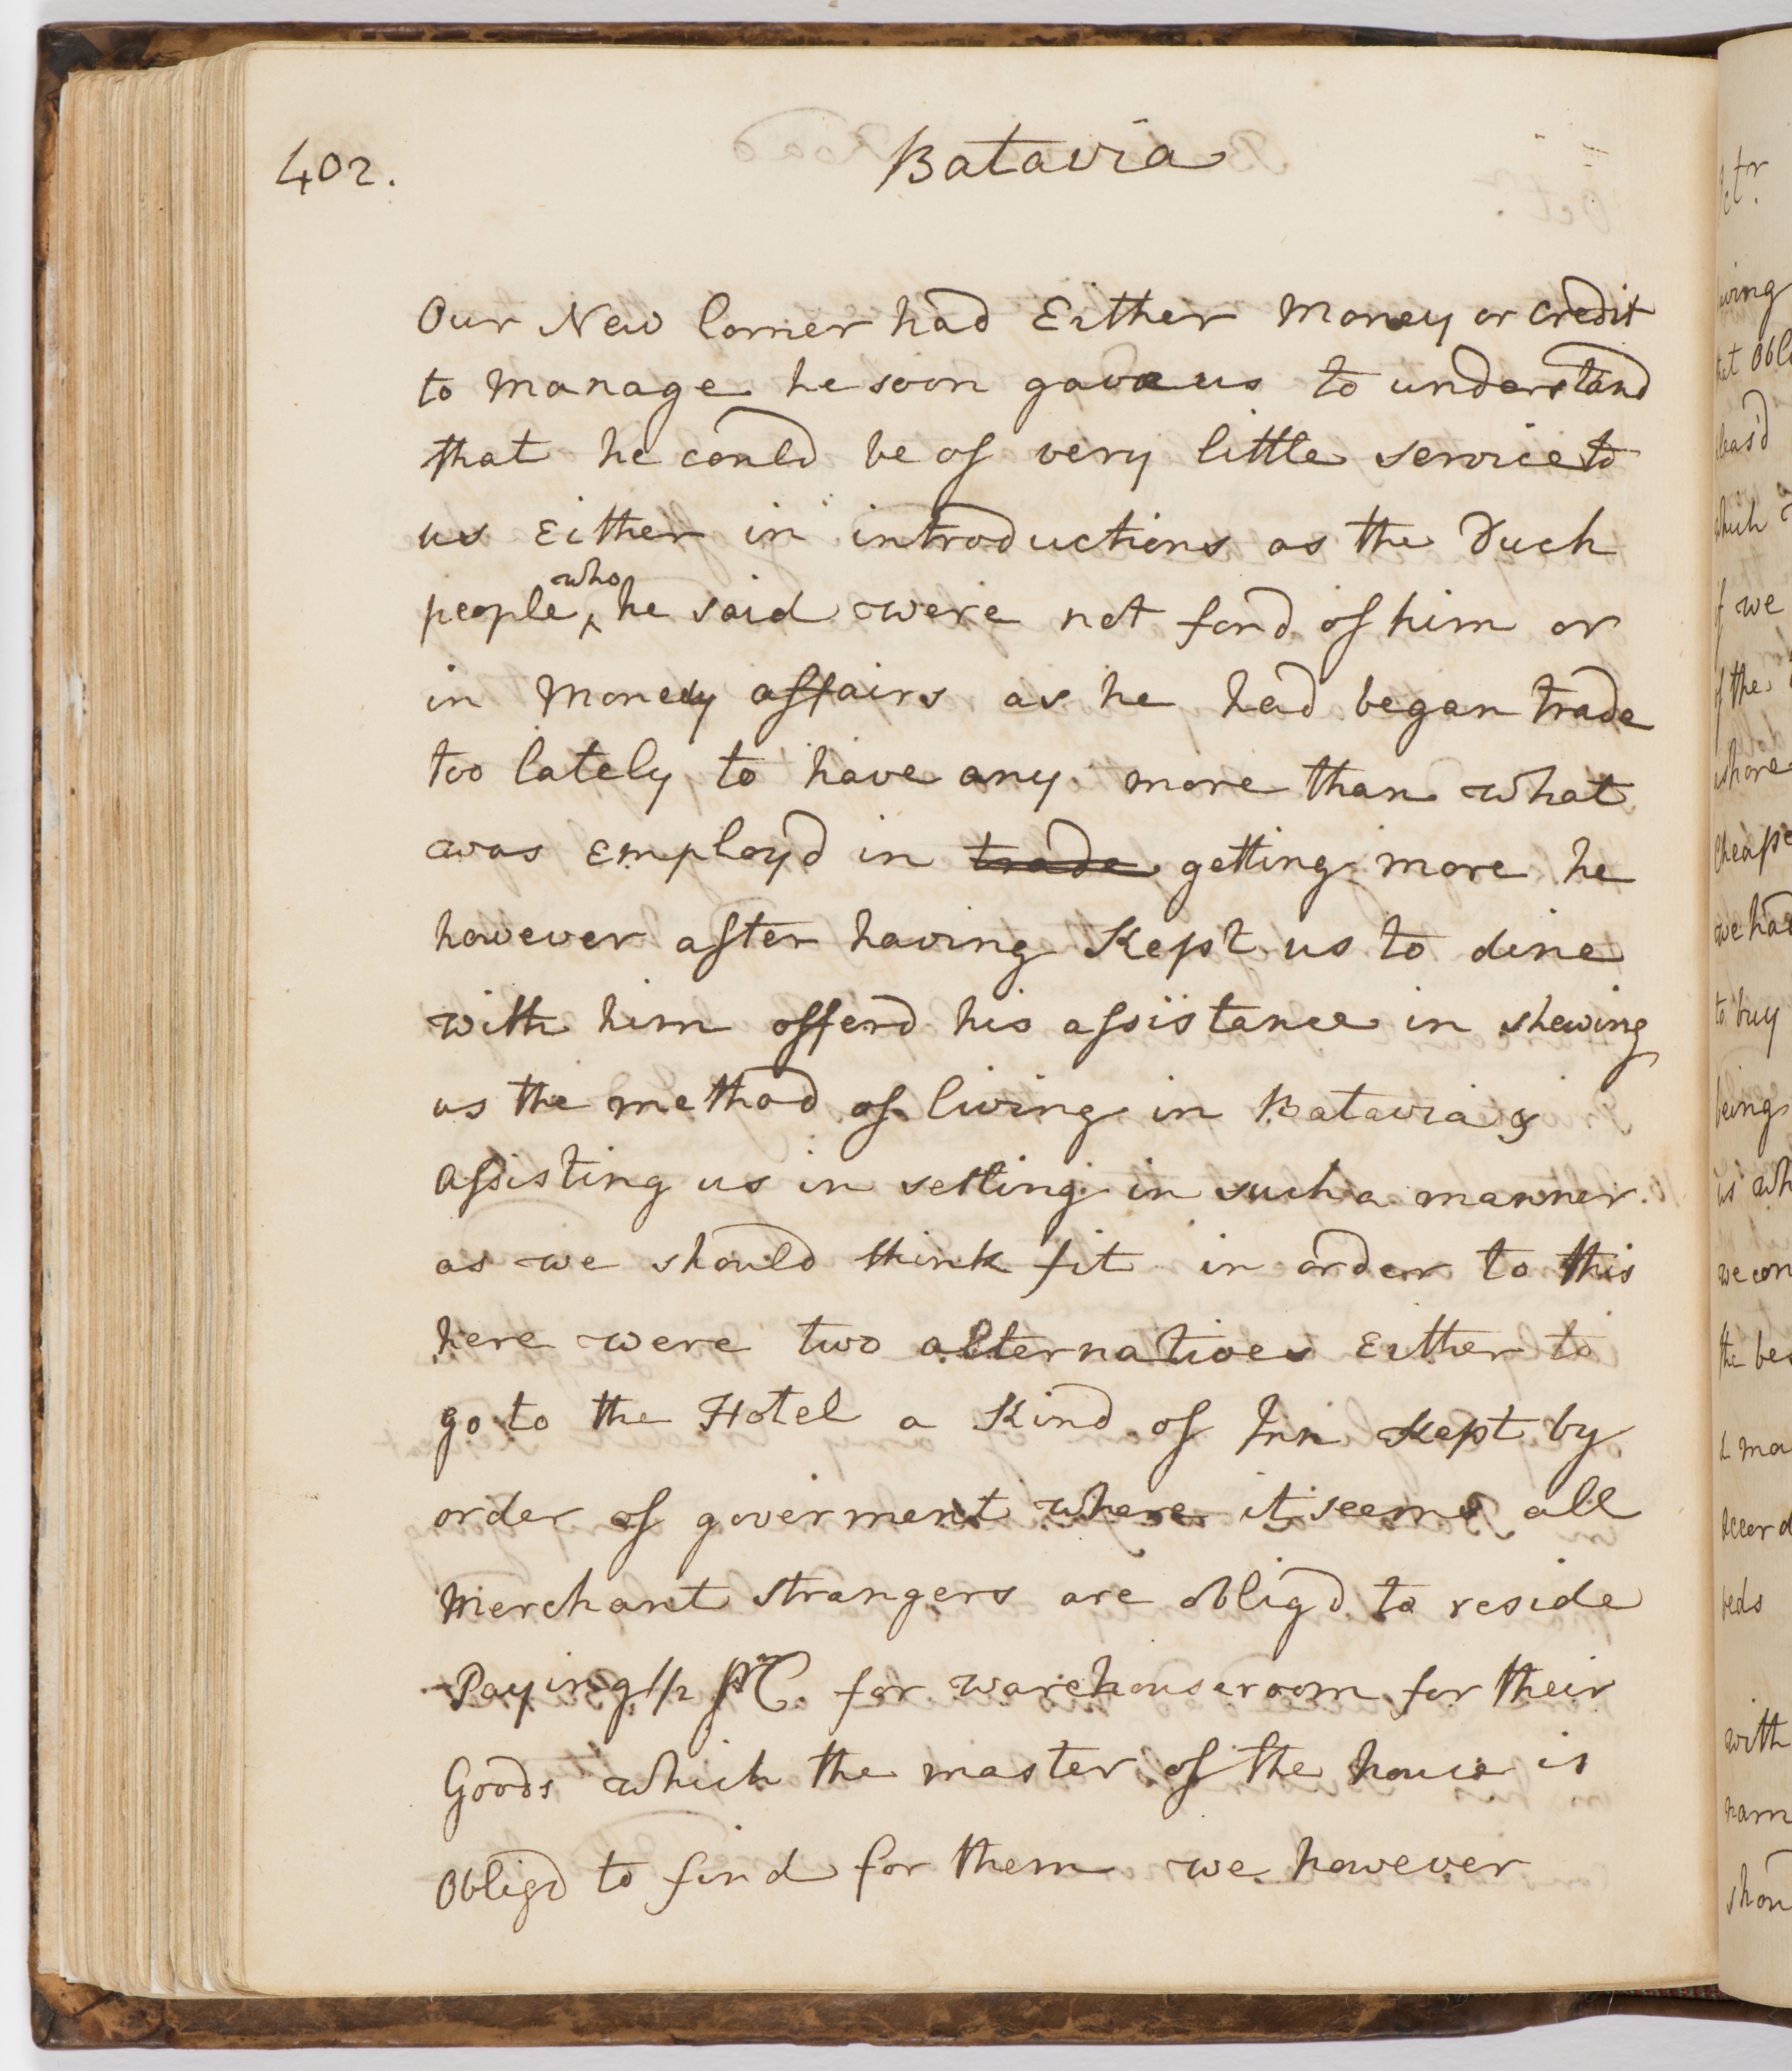 402.
Batavia
Our New Comer had Either Money or credit
to manage he soon gave us to understand
that he could be of very little service to
us Either in introductions as the Duch
people who he said were not fond of him or
in Money affairs as he had began trade
too lately to have any more than what
was employd in trade getting more he
however after having Kept us to dine
with him offerd his assistance in shewing
us the method of living in Batavia &
assisting us in setling in such a manner
as we should think fit in order to this
here were two alternatives Either to
go to the Hotel a Kind of Inn Kept by
order of goverment where it seems all
Merchant strangers are obligd to reside
Paying 1/2 pr C. for warehouse room for their
Goods which the master of the house is
obligd to find for them we however